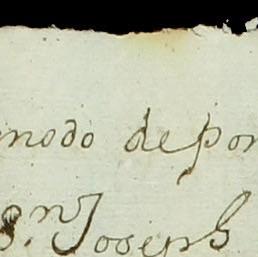 modo de pon
Joseph